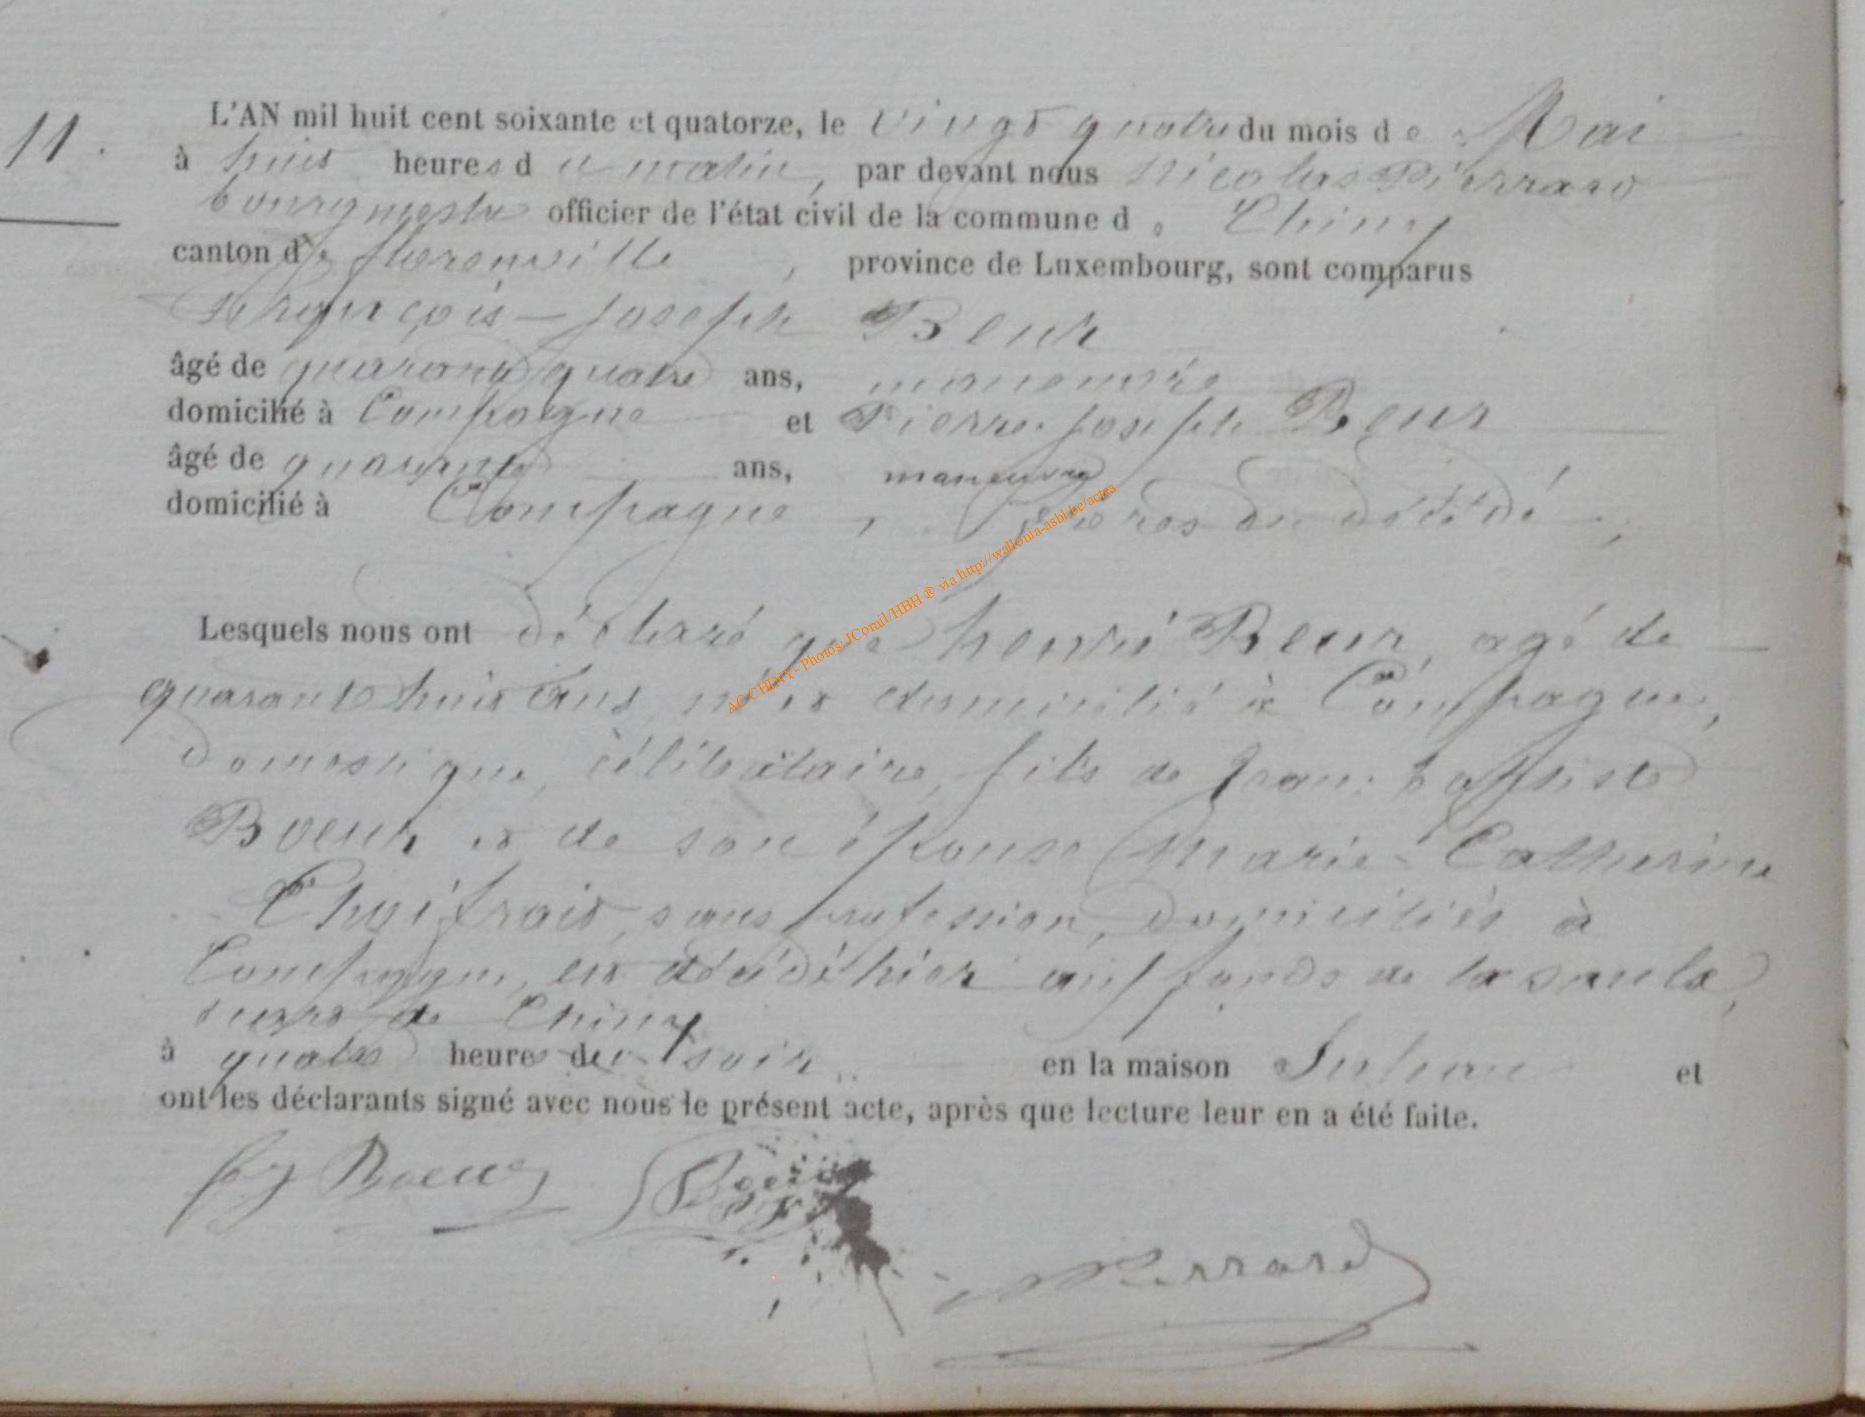 11.
L'AN mil huit cent soixante et quatorze, le vingt quatre du mois de Mai
à huit heures du matin, par devant nous Nicolas Pierrard
bourgmestre officier de l'état civil de la commune de Chiny
canton de florenville, province de Luxembourg, sont comparus
François-Joseph Beur
âgé de quarante quatre ans, manoeuvre
domicilié à Compogne et Pierre Joseph Beur
âgé de quarante ans, manoeuvre
domicilié à Compogne, frères du décédé,
Lesquels nous ont déclaré que henri Beur, agé de
quarante huit ans, né et domicilié à Compogne,
domestique, célibataire, fils de Jean baptiste
Boeur et de son épouse Marie-Catherine
sans profession, domiciliés à
Compogne, est décédé hier au fonds de la
de Chiny
à quatre heures du soir en la maison et
ont les déclarants signé avec nous le présent acte, après que lecture leur en a été faite.
fj Boeur Boeur
Pierrard
AC CHINY - Photos JCornil/HBH ® via http://wallonia-asbl.be/actes